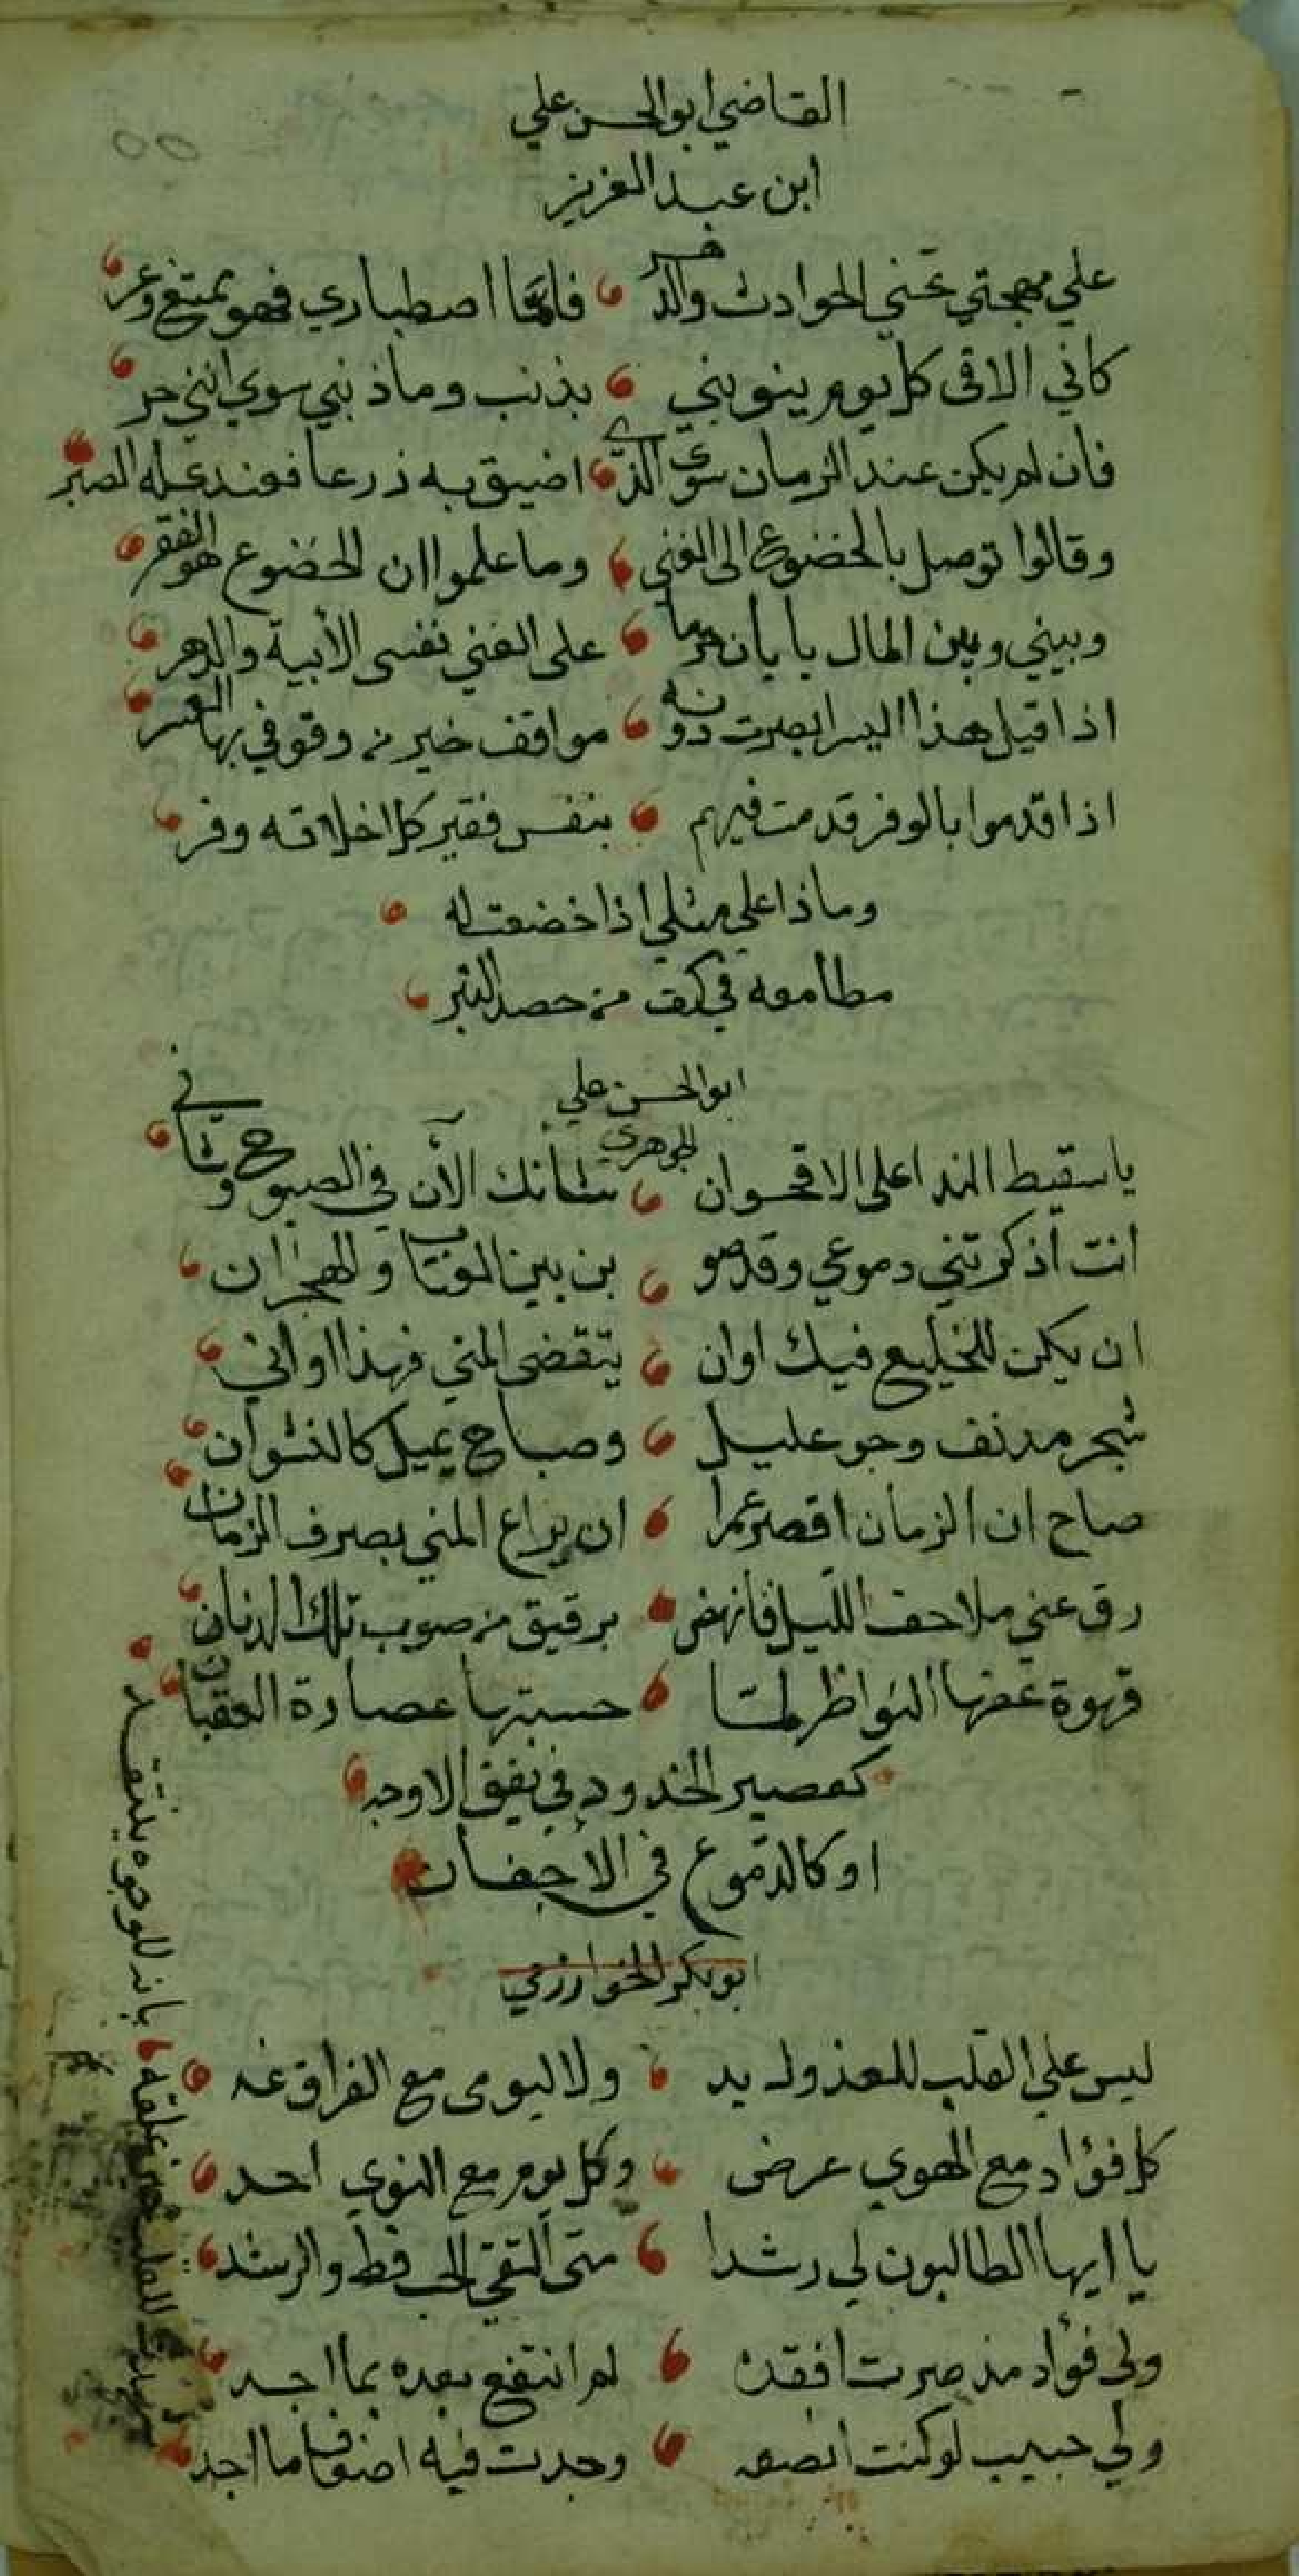 القاضي ابو الحسن علي
ابن عبد العزيز
علي مهجتي تجني الحوادث والدهر فاما اصطباري فهو ممتنع وعر
كاني الاقى كل يوم ينوبني بذنب وما ذنبي سوي انني حر
فان لم يكن عند الزمان سوي الذي اضيق به ذرعا فعندي له الصبر
وقالوا توصل بالخضوع الى الغنى وما علموا ان الخضوع هو الفقر
وبيني وبين المال بابان حرما على الغني نفسى الأبية والدهر
اذا قيل هذا اليسر ابصرت دونه مواقف خير من وقوفي بها العسر
اذا قدموا بالوفر قدمت فيهم بنفس فقير كل اخلاقه وفر
وماذا علي مثلي اذا خضعت له
مطامعه في كف من حصل التبر
ابو الحسن علي
الجوهري
يا سقيط الندا على الاقحوان شأنك الآن في الصبوح وشاني
انت اذكرتني دموعي وقد صو بن بين العتاب والهجران
ان يكن للخليع فيك اوان يتقضى المني فهذا اواني
شجر مدنف وجو عليل وصباح يميل كالنشوان
صاح ان الزمان اقصر عمرا ان يراع المني بصرف الزمان
رق عني ملاحف الليل فانهض برقيق من صوب تلك الدنان
قهوة عقها النواظر لما حسبتها عصارة العقيان
كعصير الخدود في يقق الاوجه
او كالدموع في الأجفان
ابو بكر الخوارزمي
ليس علي القلب للعذول يد ولا ليومى مع الفراق غد
كل فؤاد مع الهوي عرض وكل يوم مع النوي احد
يا ايها الطالبون لي رشدا متى التقى الحب قط والرشد
ولى فؤاد مذ صرت افقده لم انتفع بعده بما اجد
ولي حبيب لو كنت انصفه وجدت فيه اضعاف ما اجد